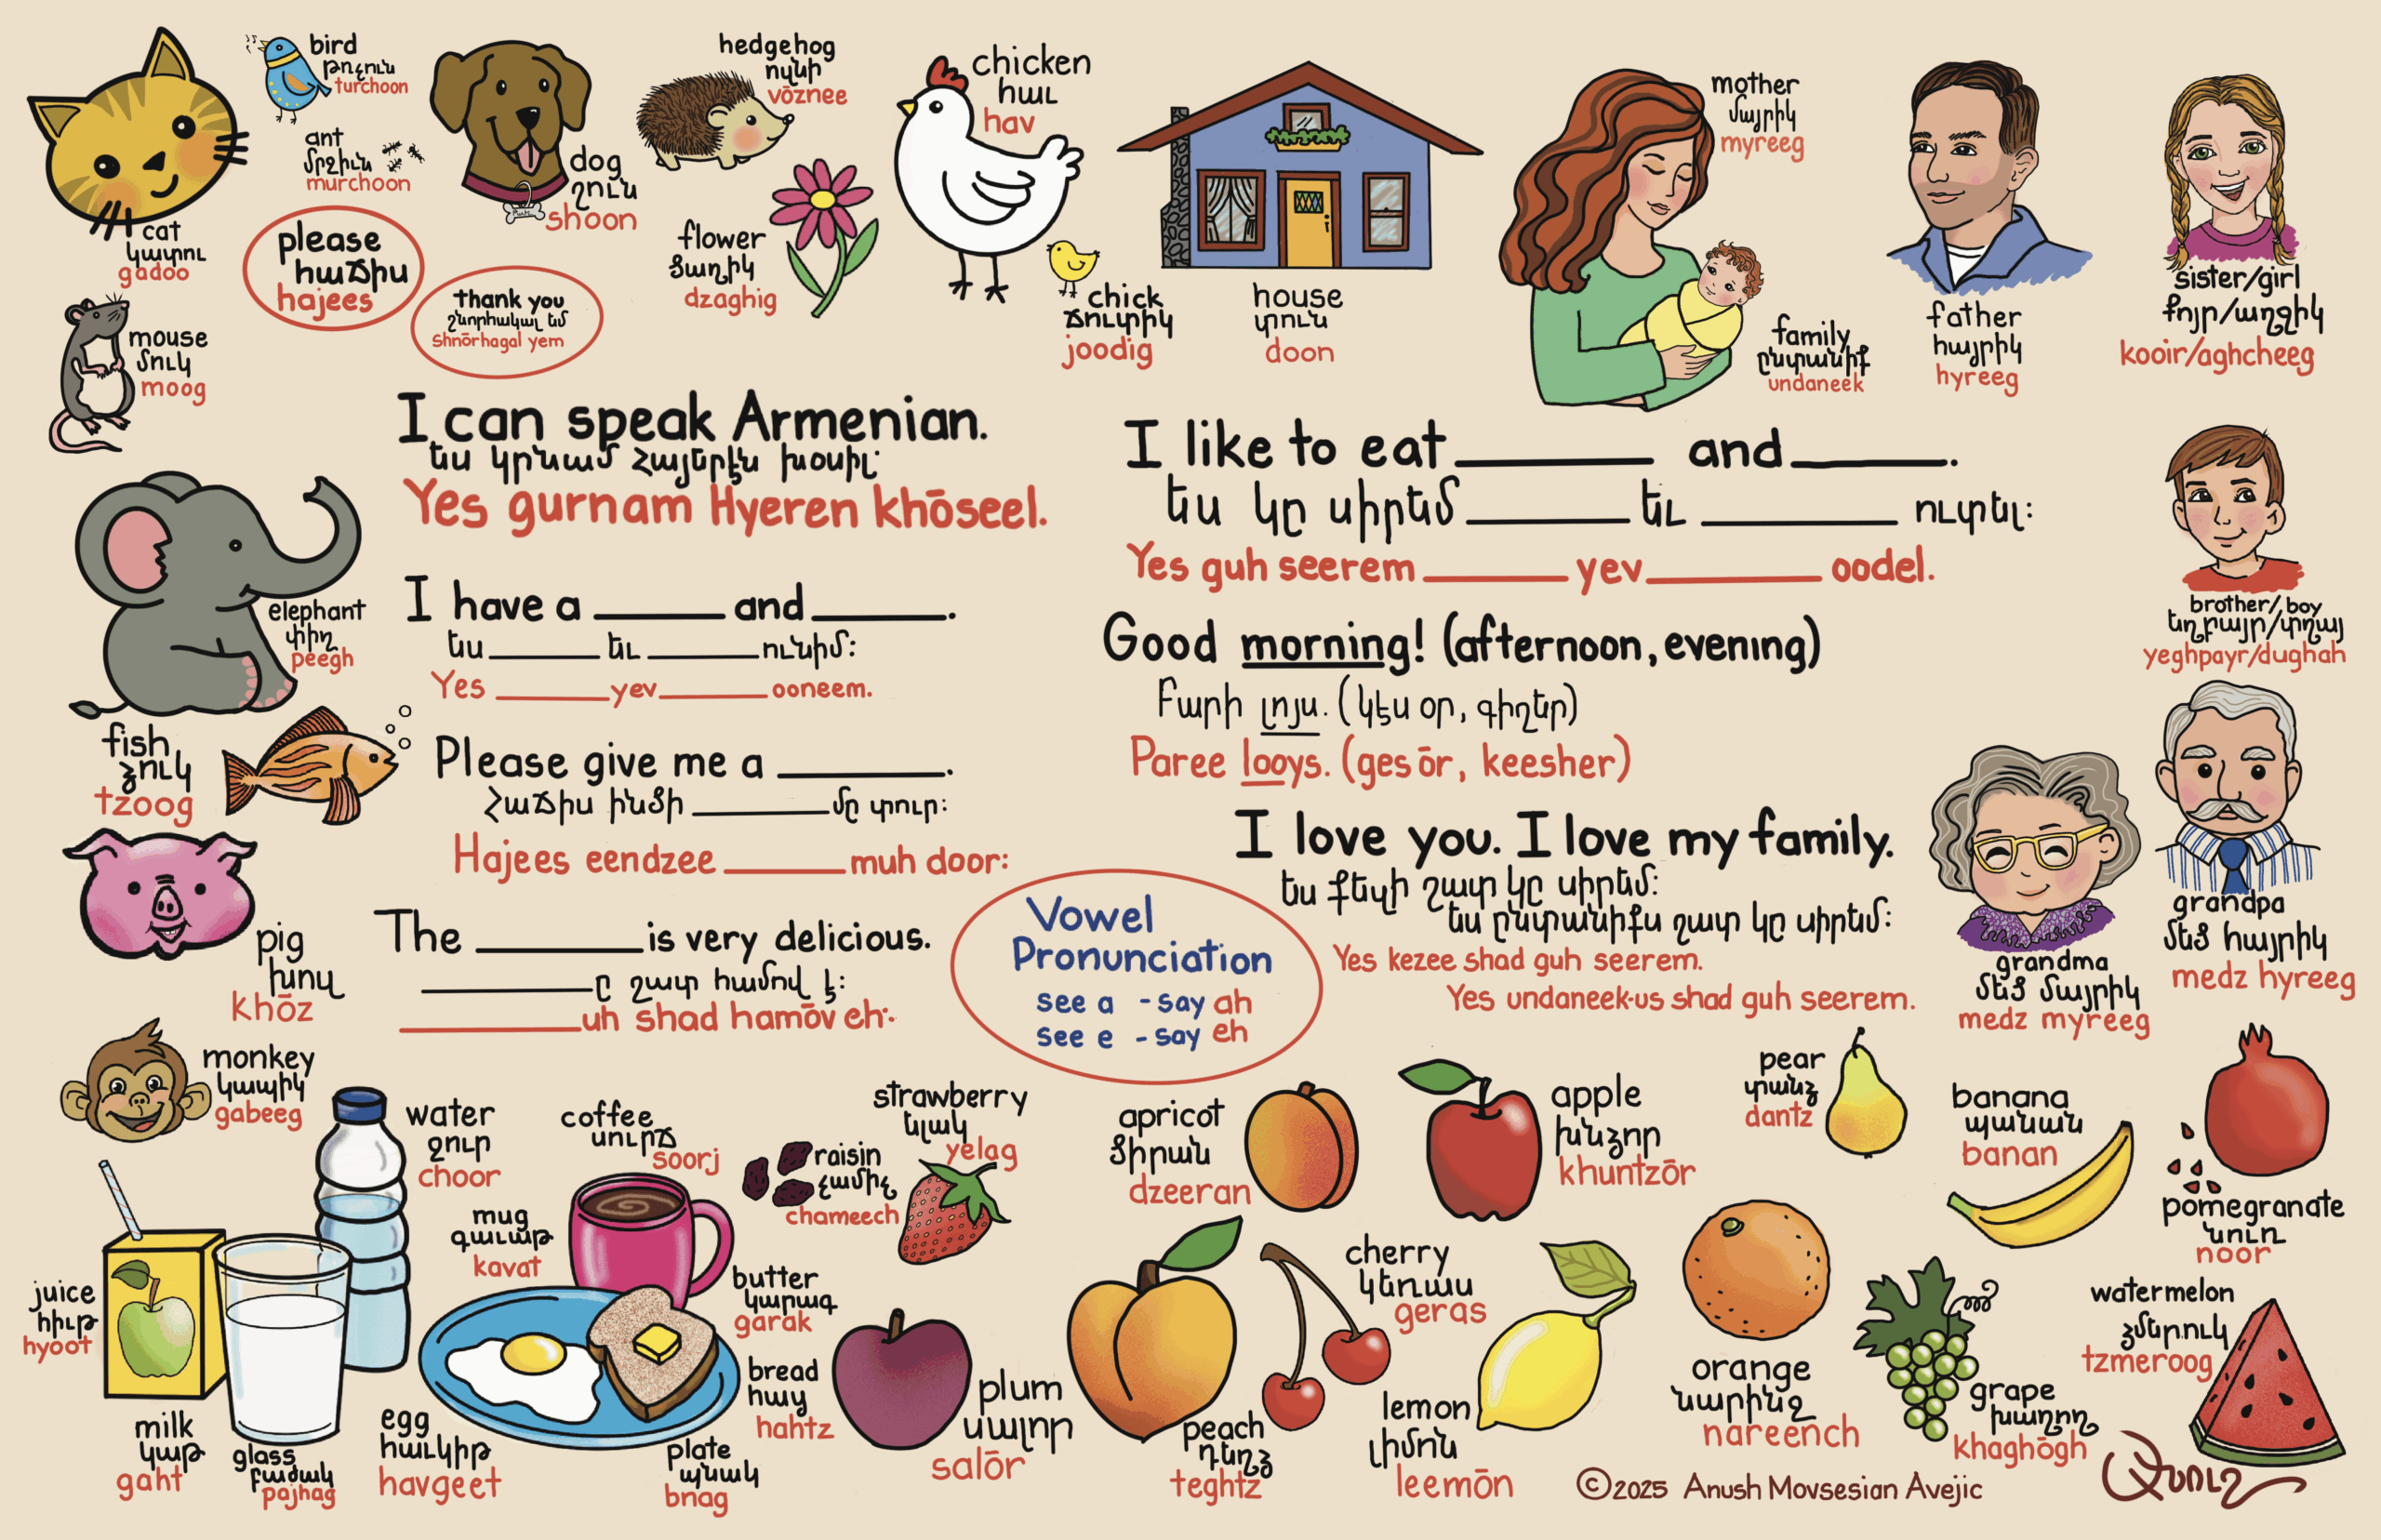 bird
թռչուն
turchoon
ant
մրջիւն
murchoon
cat
կատու
gadoo
please
հաճիս
hajees
dog
շուն
shoon
thank you
շնորհակալ եմ
Shnōrhagal yem
hedgehog
ոզնի
vōznee
flower
ծաղիկ
dzaghig
chicken
հաւ
hav
chick
ճուտիկ
joodig
house
տուն
doon
mother
մայրիկ
myreeg
family
ընտանիք
undaneek
father
հայրիկ
hyreeg
sister/girl
քոյր/աղջիկ
kooir/aghcheeg
mouse
մուկ
moog
I can speak Armenian.
Ես կրնամ Հայերէն խօսիլ:
Yes gurnam Hyeren khōseel.
I like to eat ______ and ______.
Ես կը սիրեմ ______ եւ ______ ուտել:
Yes guh seerem ______ yev ______ oodel.
brother/boy
եղբայր/տղայ
yeghpayr/dughah
elephant
փիղ
peegh
I have a ______ and ______.
Ես ______ եւ ______ ունիմ:
Yes ______ yev ______ ooneem.
Good morning! (afternoon, evening)
Բարի լոյս. (կէս օր, գիշեր)
Paree looys. (ges ōr, keesher)
fish
ձուկ
tzoog
Please give me a ______.
Հաճիս ինծի ______ մը տուր:
Hajees eendzee ______ muh door:
I love you. I love my family.
Ես քեզի շատ կը սիրեմ:
Ես ընտանիքս շատ կը սիրեմ:
Yes kezee shad guh seerem.
Yes undaneek-us shad guh seerem.
grandpa
մեծ հայրիկ
medz hyreeg
grandma
մեծ մայրիկ
medz myreeg
pig
խոզ
khōz
The ______ is very delicious.
______ը շատ համով է:
______uh shad hamōv eh:
Vowel
Pronunciation
see a - say ah
see e - say eh
monkey
կապիկ
gabeeg
water
ջուր
choor
coffee
սուրճ
soorj
raisin
չամիչ
chameech
strawberry
ելակ
yelag
apricot
ծիրան
dzeeran
apple
խնձոր
khuntzōr
pear
տանձ
dantz
banana
պանան
banan
pomegranate
նուռ
noor
juice
հիւթ
hyoot
mug
գաւաթ
kavat
butter
կարագ
garak
bread
հաց
hahtz
milk
կաթ
gaht
glass
բաժակ
pajhag
egg
հաւկիթ
havgeet
plate
պնակ
bnag
plum
սալոր
salōr
peach
դեղձ
teghtz
cherry
կեռաս
geras
lemon
լիմոն
leemōn
orange
նարինջ
nareench
grape
խաղող
khaghōgh
watermelon
ձմերուկ
tzmeroog
©2025 Anush Movsesian Avejic